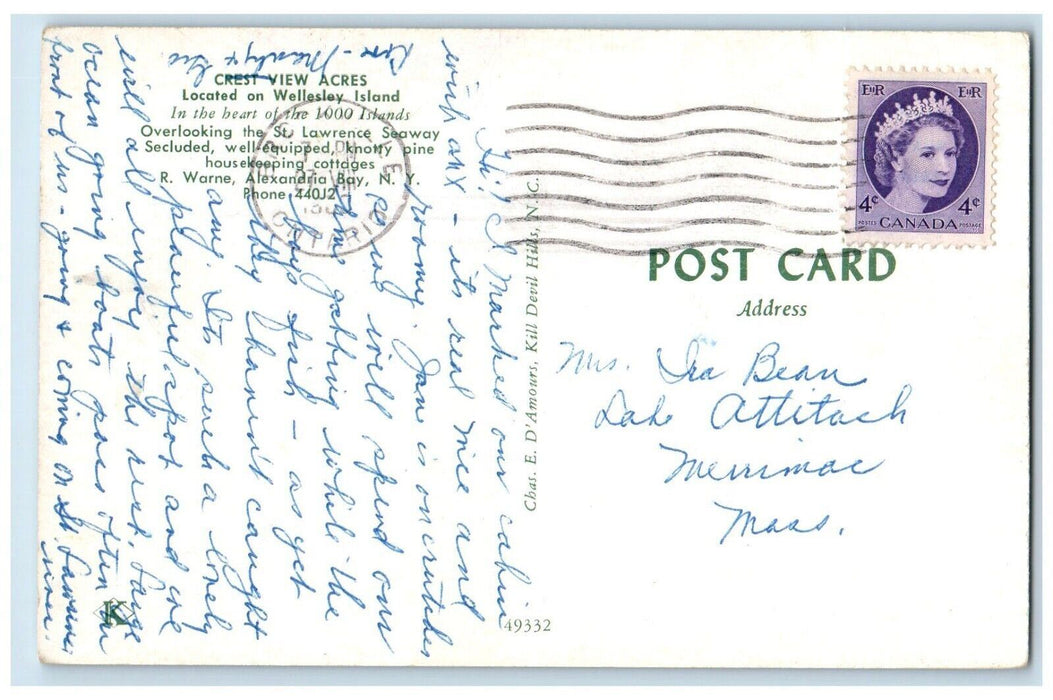 CREST VIEW ACRES
Located on Wellesley Island
In the heart of the 1000 Islands
Overlooking the St. Lawrence Seaway
Secluded, well-equipped, knotty pine
housekeeping cottages
R. Warne, Alexandria Bay, N. Y.
Phone 44OJ2
Hi! I Marked our cabin
with an X - its real nice and
roomy. Jane is on crutches
and will spend our
time gabbing while the
boys fish - as yet
they haven't caught
any. Its such a lonely
peaceful spot and we
will all enjoy the rest. Large
ocean going boats pass often in
front of us - going & coming on St. Lawrence
river.
Chas. E. D'Amours, Kill Devil Hills, N.C.
49332
K
ONTARIO
EIIR EIIR
4¢ 4¢
POSTES POSTAGE
CANADA
POST CARD
Address
Mrs. Ira Bean
Lake Attitash
Merrimac
Mass.